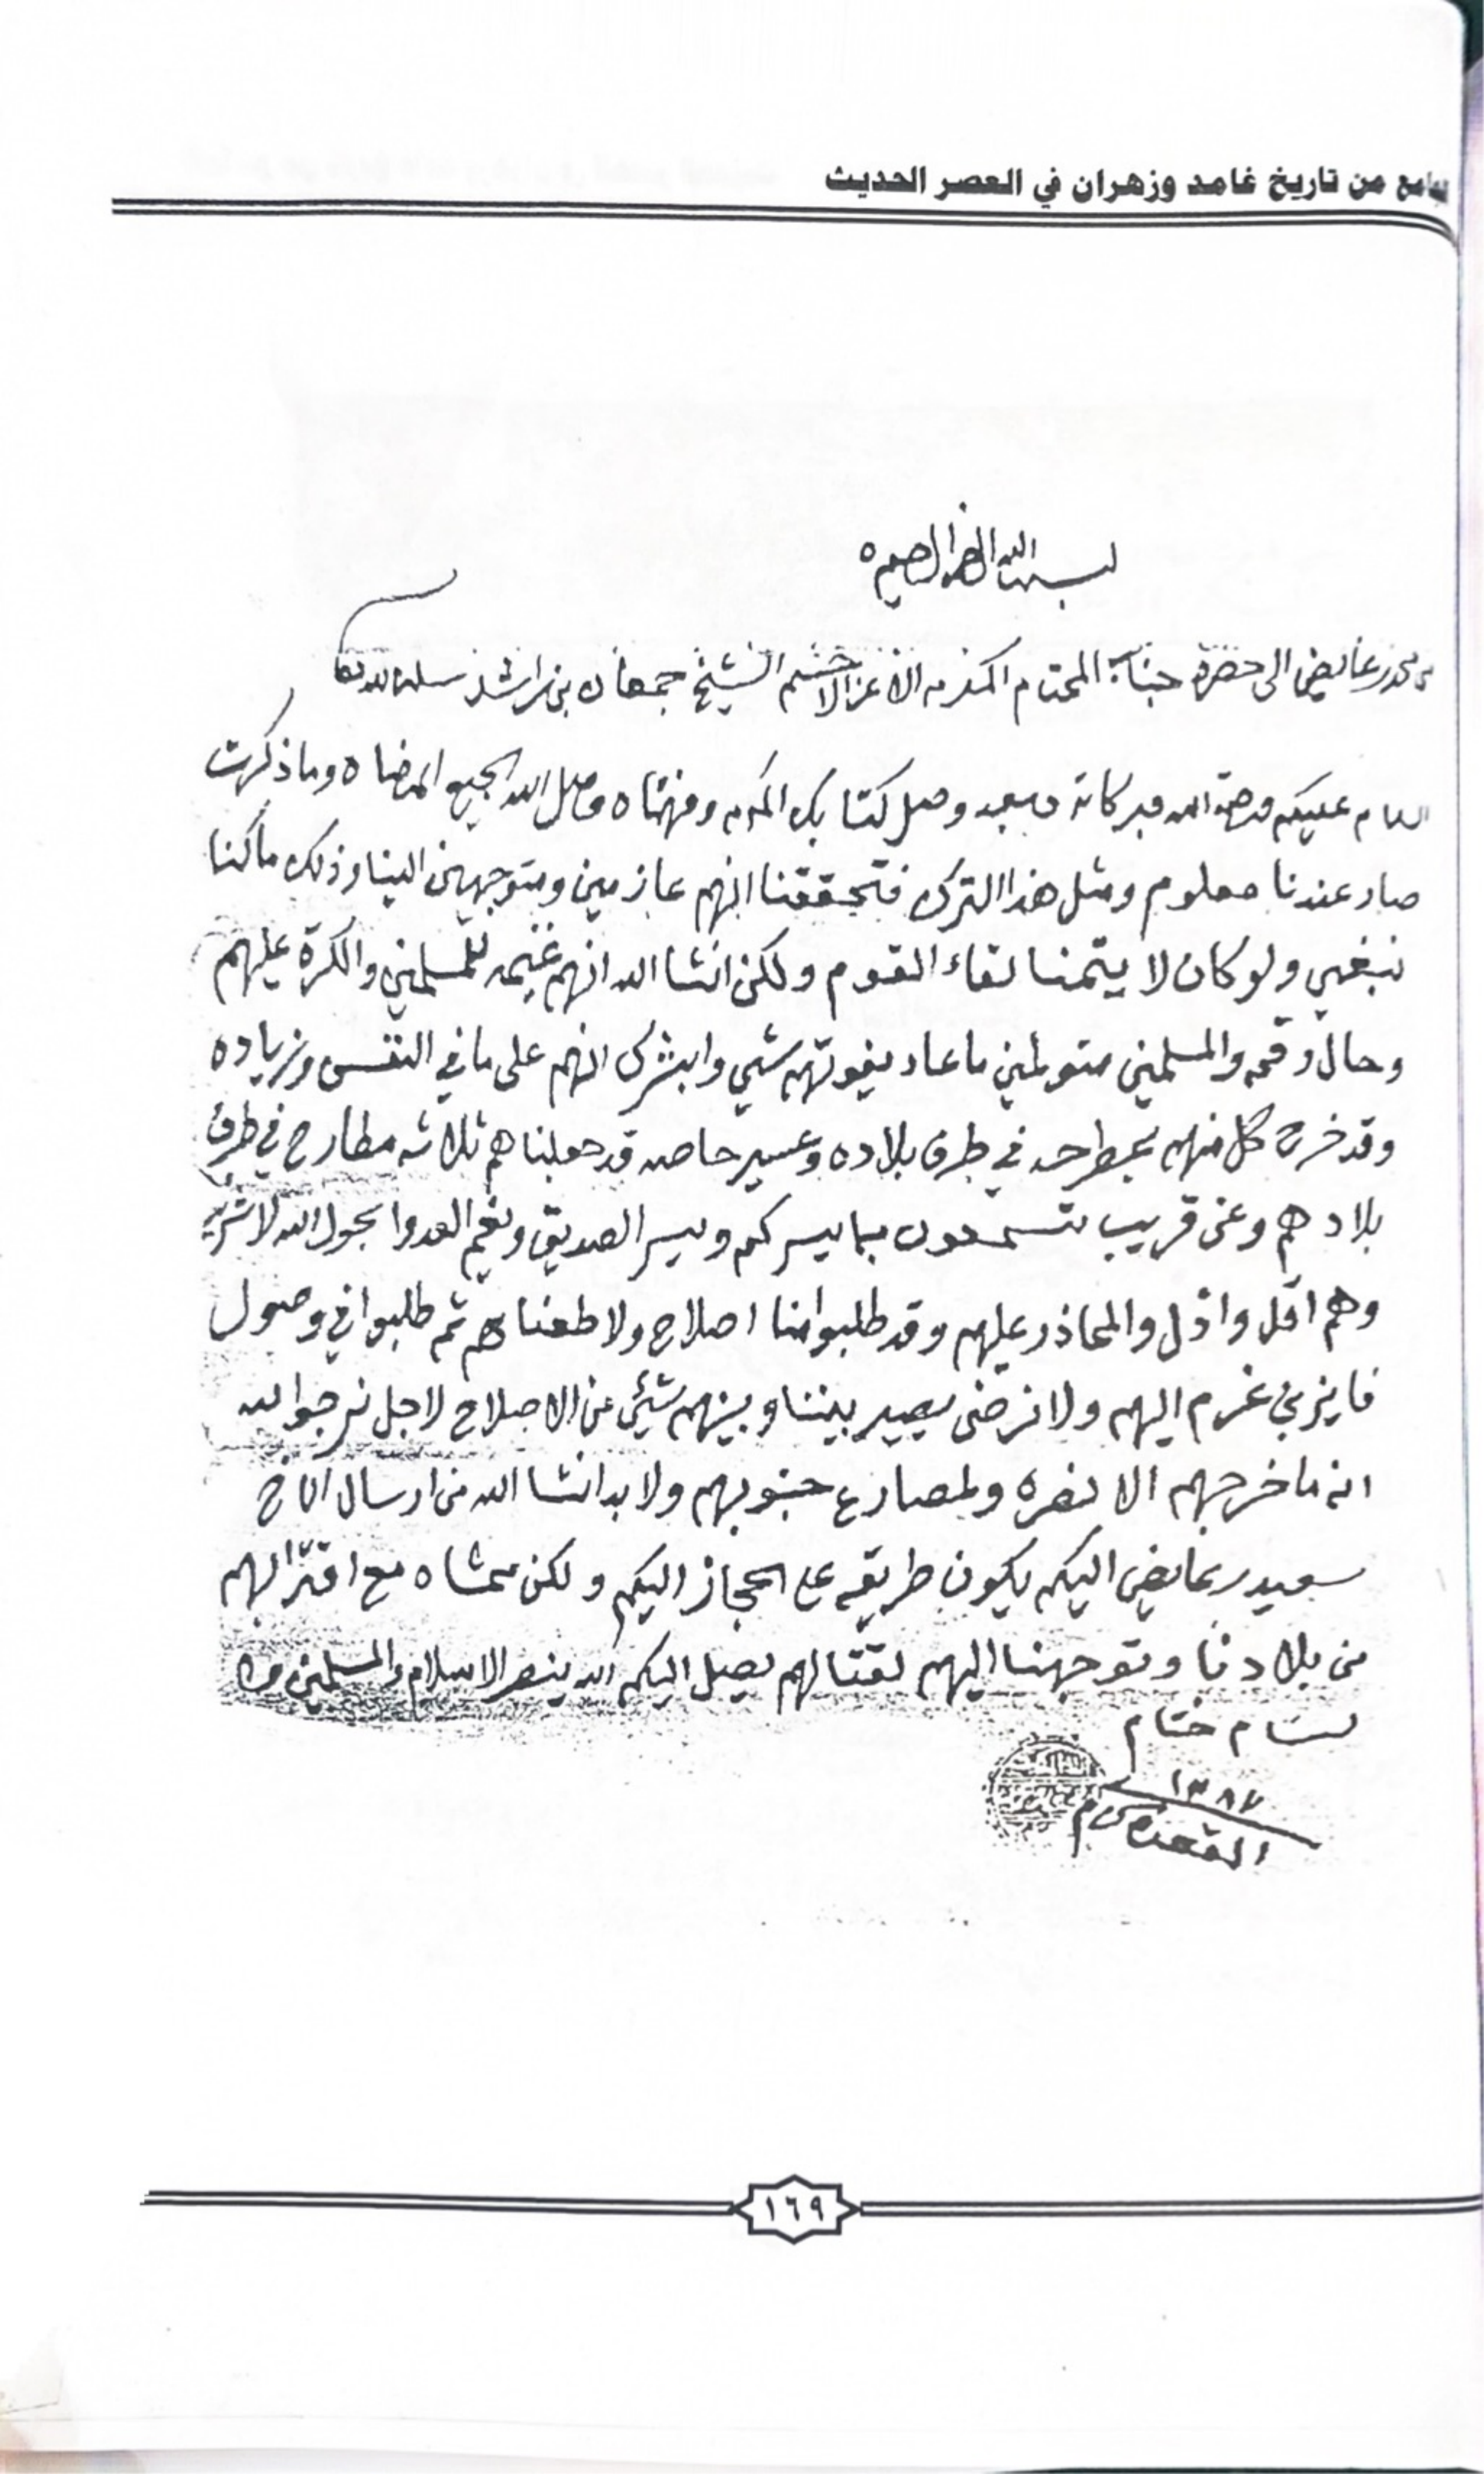 من تاريخ غامد وزهران في العصر الحديث
بسم الله الرحمن الرحيم
عايض الى حضرة جناب المحترم المكرم الاعز الاحشم الشيخ جمعان بن راشد سلمه الله
السلام عليكم ورحمة الله وبركاته وبعد وصل كتابك المكرم وفهمناه وصل الله الجميع الى رضاه وما ذكرت
صار عندنا معلوم ومثل هذا الترك فتحققنا انهم عازمين ومتوجهين الينا وذلك ما كنا
نبغي ولو كان لا يتمنا لقاء القوم ولكن انشا الله انهم غنيمه للمسلمين والكرة عليهم
وحال رقمه والمسلمين ما عاد يفوتهم شي وابشرك انهم على ما في النفس وزياده
وقد خرج كل منهم بمطرحه في طرف بلاده وعسير خاصه قد جعلناهم ثلاثه مطارح في طرف
بلادهم وعن قريب تسمعون بما يسركم ويسر الصديق ويغم العدوا بحول الله
وهم اقل واذل والمحاذر عليهم وقد طلبوا منا اصلاح ولا طعناهم ثم طلبوا في وصول
فايز بن غرم اليهم ولا نرضى يصير بيننا وبينهم شيئ من الاصلاح لاجل نرجوا الله
انه ما خرجهم الا لنصره ولمصارع جنوبهم ولا بد انشا الله من ارسال الاخ
سعيد بن عايض اليكم يكون طريقه على الحجاز اليكم ولكن ممشاه مع اقترابهم
من بلادنا وتوجهنا اليهم لقتالهم يصل اليكم الله ينصر الاسلام والمسلمين
ختام
القعده
١٦٩